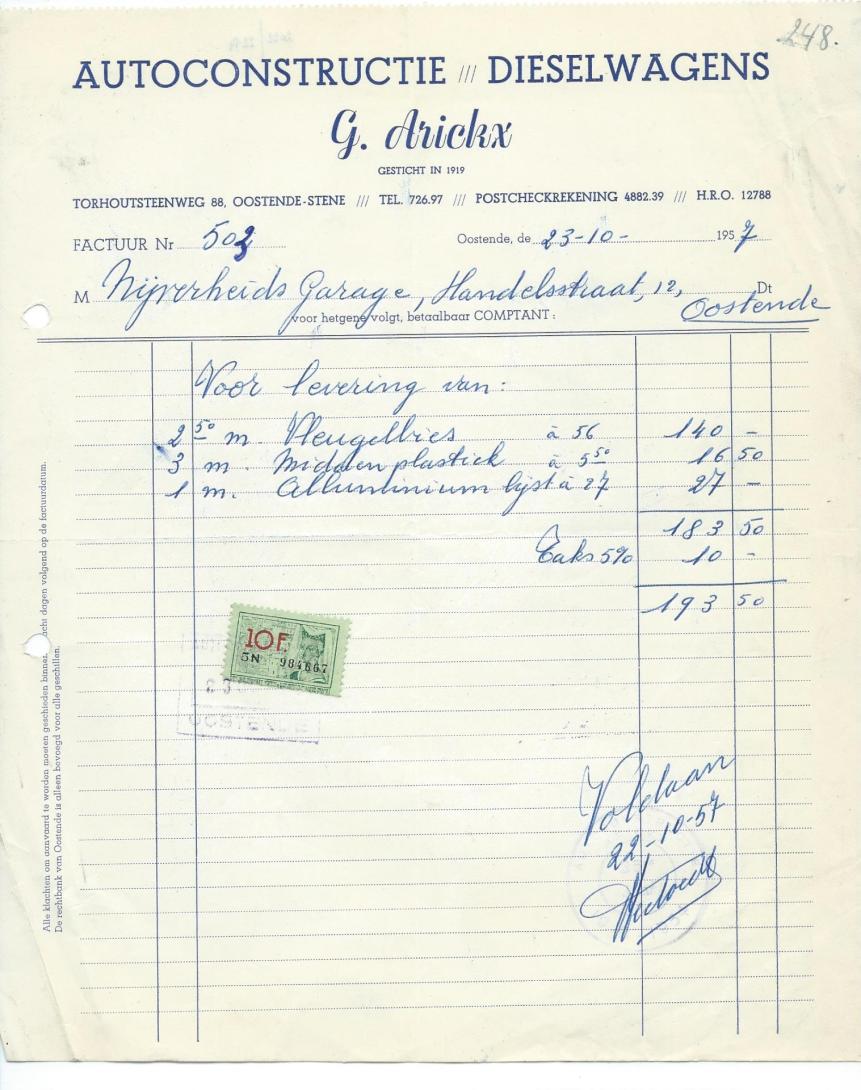 248.
AUTOCONSTRUCTIE /// DIESELWAGENS
G. Arickx
GESTICHT IN 1919
TORHOUTSTEENWEG 88, OOSTENDE-STENE /// TEL. 726.97 /// POSTCHECKREKENING 4882.39 /// H.R.O. 12788
FACTUUR Nr 503 Oostende, de 23-10- 1957
M Nijverheids Garage, Handelsstraat, 12, Dt
Oostende
voor hetgene volgt, betaalbaar COMPTANT:
Voor levering van:
2 50 m. Vleugelbies à 56 140 -
3 m. Midden plastiek à 5 50 16 50
1 m. Alluminium lijst à 27 27 -
183 50
Taks 5% 10 -
193 50
10 F.
5N 984667
23
OOSTENDE
Voldaan
22-10-57
Alle klachten om aanvaard te worden moeten geschieden binnen acht dagen volgend op de factuurdatum.
De rechtbank van Oostende is alleen bevoegd voor alle geschillen.